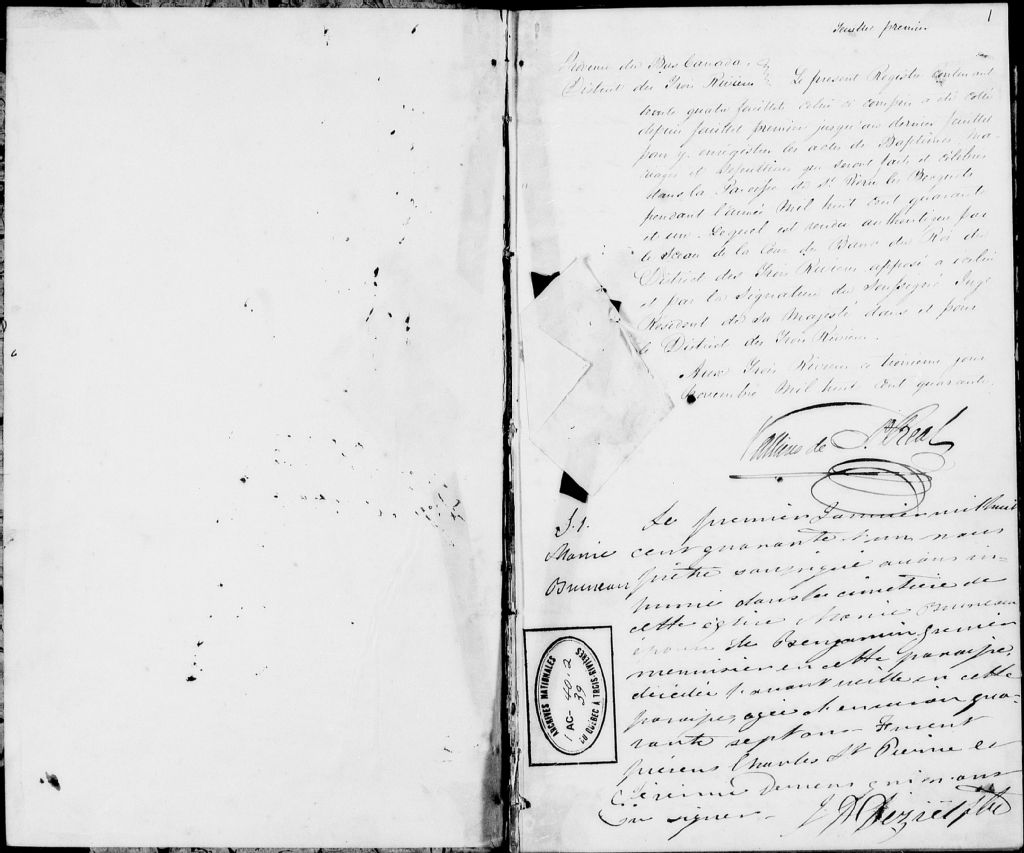 1
feuillet premier
Province du Bas Canada
District des Trois Rivières } Le présent Registre contenant
trente quatre feuillets celui ci compris a été cotté
depuis feuillet premier jusqu'au dernier feuillet
pour y enregistrer les actes de Baptêmes Ma-
riages et Sépultures qui seront faits et célébrés
dans la Paroisse de St Pierre les Becquets
pendant l'année Mil huit cent quarante
et un. Lequel est rendu authentique par
le Sceau de la Cour du Banc du Roi du
District des Trois Rivières apposé a celui
et par la Signature du Soussigné Juge
Résident de Sa Majesté dans et pour
le District des Trois Rivières.
Aux Trois Rivières ce troisième jour
Novembre Mil huit cent quarante.
Vallières de St Real
S. 1.
Marie
Bruneau
Le premier Janvier mil huit
cent quarante & un nous
prêtre soussigné avons in-
humé dans le cimetière de
cette église Marie Bruneau
épouse de Benjamin Grenier
menuisier en cette paroisse,
décédée l'avant veille en cette
paroisse, agée d'environ qua-
rante sept ans. Furent
présens Charles St Pierre et
Demers qui n'ont
su signer.
Deziel Ptre
ARCHIVES NATIONALES
1 AC- 40-2
39
DU QUÉBEC À TROIS-RIVIÈRES